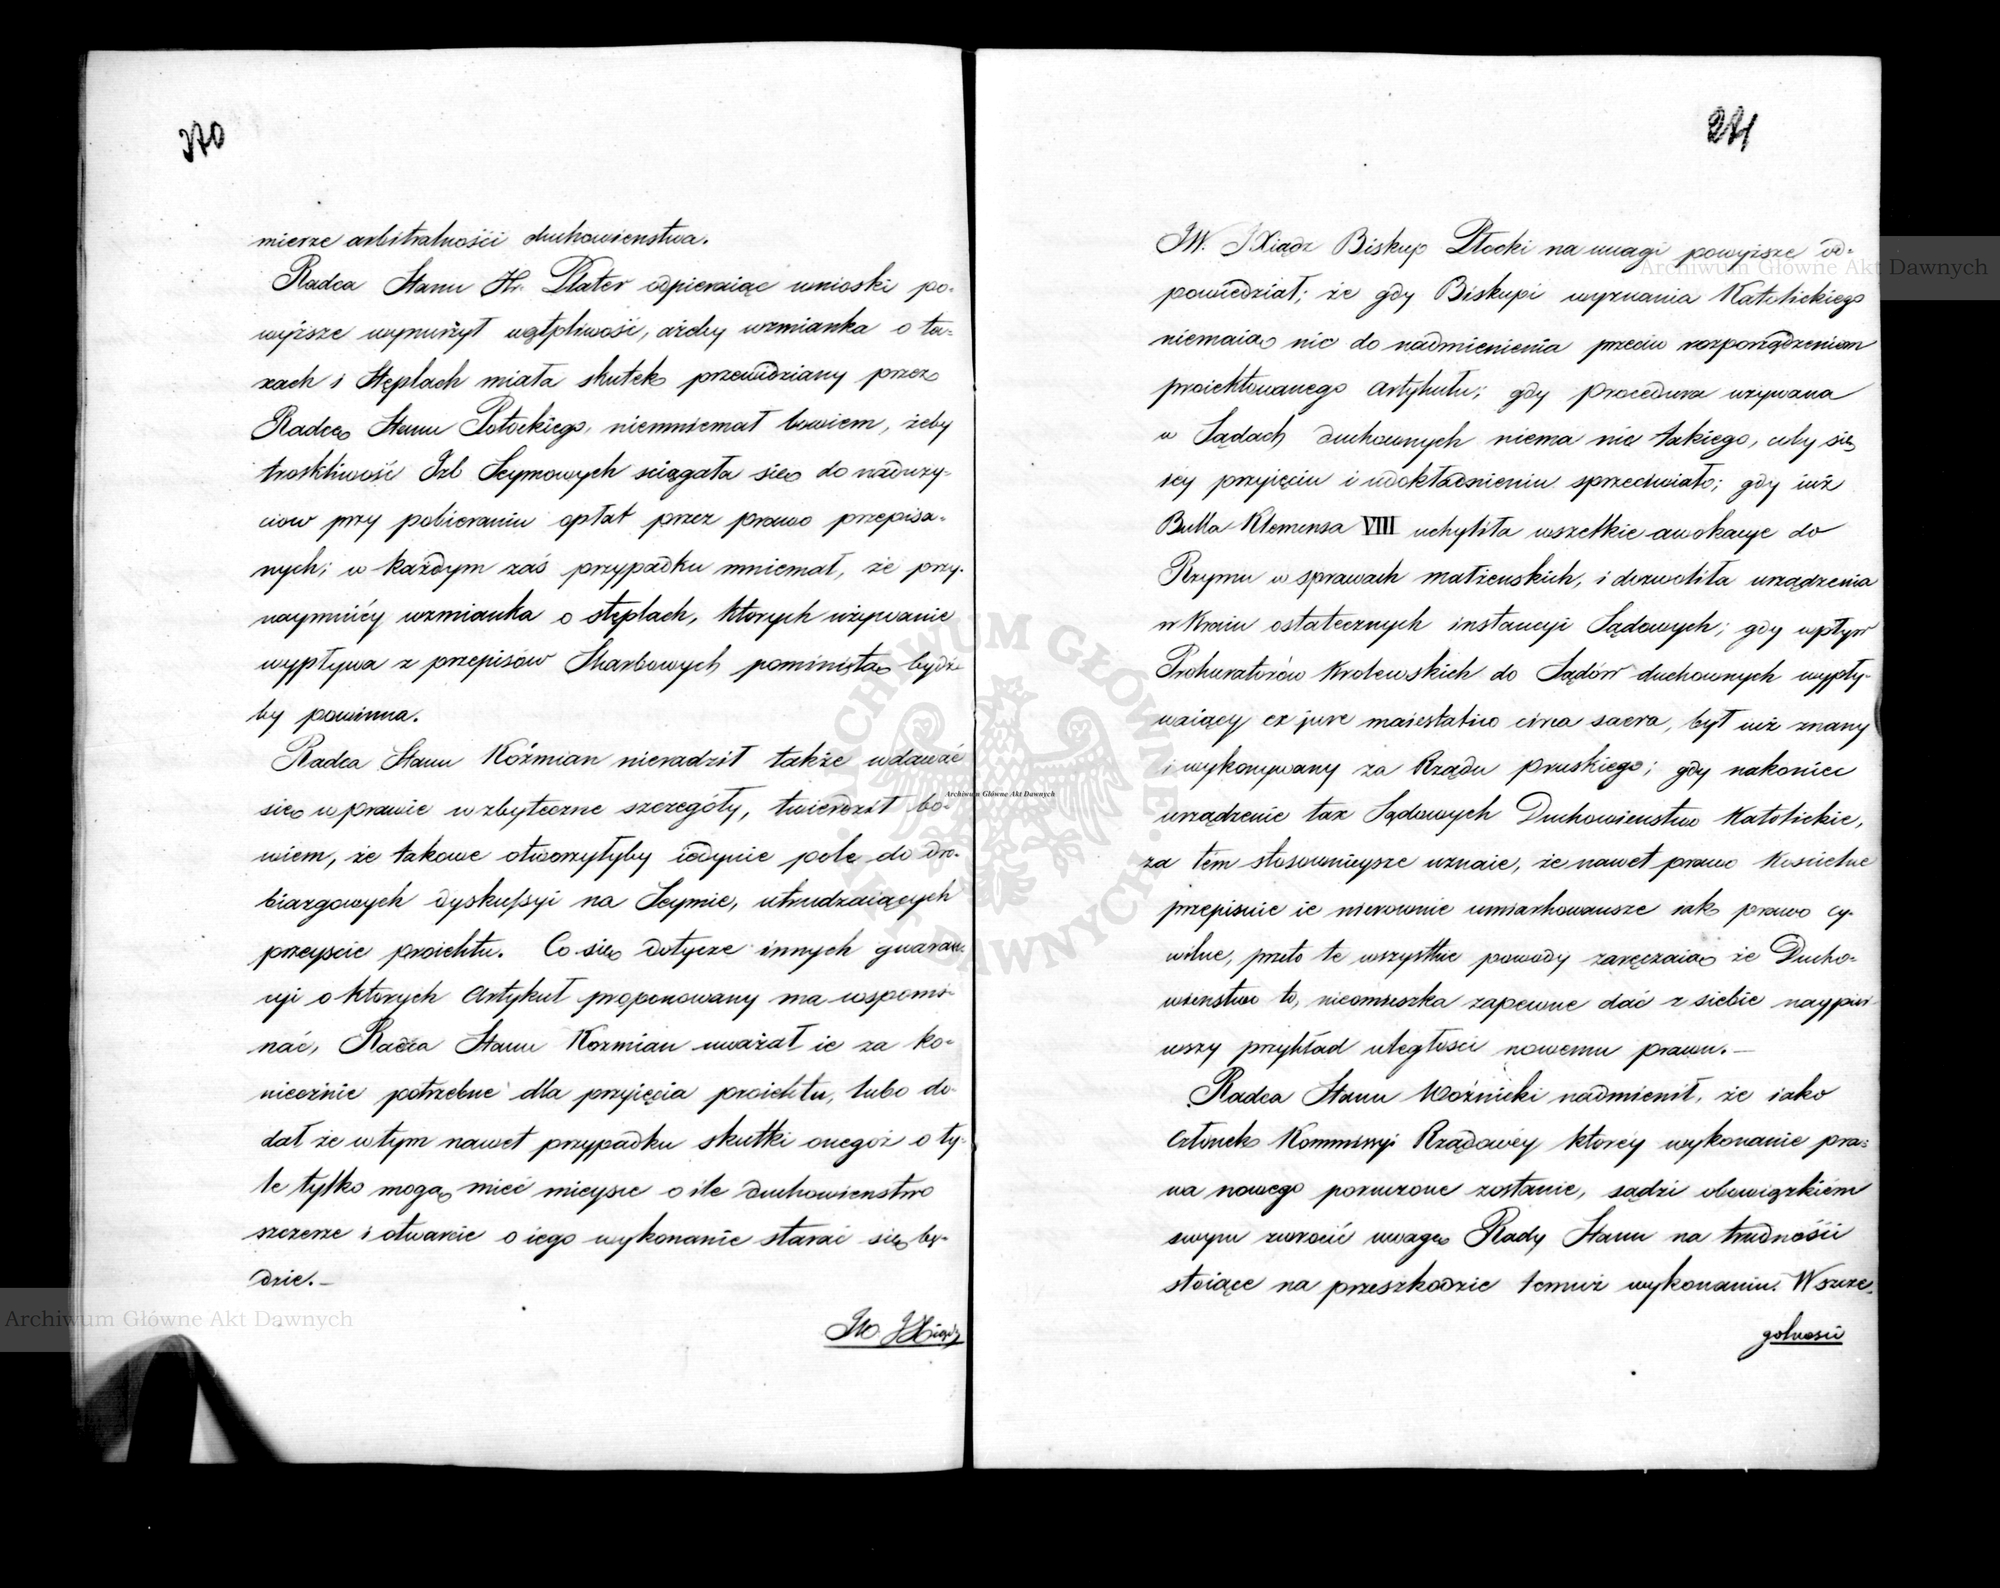 270
mierze arbitralności duchowienstwa.
Radca Stanu Hr. Plater odpieraiąc wnioski po-
wyższe wynurzył wątpliwość, ażeby wzmianka o ta-
xach i Stęplach miała skutek przewidziany przez
Radcę Stanu Potockiego, niemniemał bowiem, żeby
troskliwość Izb Seymowych sciągała się do naduży-
ciow przy pobieraniu opłat przez prawo przepisa-
nych; w każdym zaś przypadku mniemał, że przy-
naymniéy wzmianka o stęplach, ktorych używanie
wypływa z przepisów Skarbowych pominiętą bydź
by powinna.
Radca Stanu Kóźmian nieradził także wdawać
się w prawie w zbyteczne szczegóły, twierdził bo-
wiem, że takowe otworzyłyby iedynie pole do dro-
biazgowych dyskussyi na Seymie, utrudzaiących
przeyscie proiektu. Co się dotycze innych gwaran-
cyi o ktorych Artykuł proponowany ma wspomi-
nać, Radca Stanu Kozmian uważał ie za ko-
niecznie potrzebne dla przyięcia proiektu, lubo do-
dał że w tym nawet przypadku skutki onegoż o ty-
le tylko mogą mieć mieysce o ile duchowienstwo
szczerze i otwarcie o iego wykonanie starać się bę-
dzie.—
JW. JXiądz
271
JW. JXiądz Biskup Płocki na uwagi powyższe od-
powiedział; że gdy Biskupi wyznania Katolickiego
niemaią nic do nadmienienia przeciw rozporządzeniom
proiektowanego Artykułu; gdy procedura używana
w Sądach duchownych niema nic takiego, coby się
iey przyięciu i udokładnieniu sprzeciwiało; gdy iuż
Bulla Klemensa VIII uchyliła wszelkie awokacye do
Rzymu w sprawach małżenskich, i dozwoliła urządzenia
w Kraiu ostatecznych instancyi Sądowych; gdy wpływ
Prokuratorów Krolewskich do Sądów duchownych wypły-
waiący ex jure maiestatico circa sacra, był iuż znany
i wykonywany za Rządu pruskiego; gdy nakoniec
urządzenie tax Sądowych Duchowienstwo Katolickie,
za tém stosownieysze uznaie, że nawet prawo Kościelne
przepisuie ie nierownie umiarkowansze iak prawo cy-
wilne, przeto te wszystkie powody zaręczaią że Ducho-
wienstwo to, nieomieszka zapewne dać z siebie naypier-
wszy przykład uległosci nowemu prawu.—
Radca Stanu Woźnicki nadmienił, że iako
Członek Kommissyi Rządowéy ktoréy wykonanie pra-
wa nowego poruczone zostanie, sądzi obowiązkiém
swym zwrocić uwagę Rady Stanu na trudności
stoiące na przeszkodzie temuż wykonaniu. W szcze-
golnosci
Archiwum Główne Akt Dawnych
Archiwum Główne Akt Dawnych
Archiwum Główne Akt Dawnych
ARCHIWUM GŁÓWNE AKT DAWNYCH